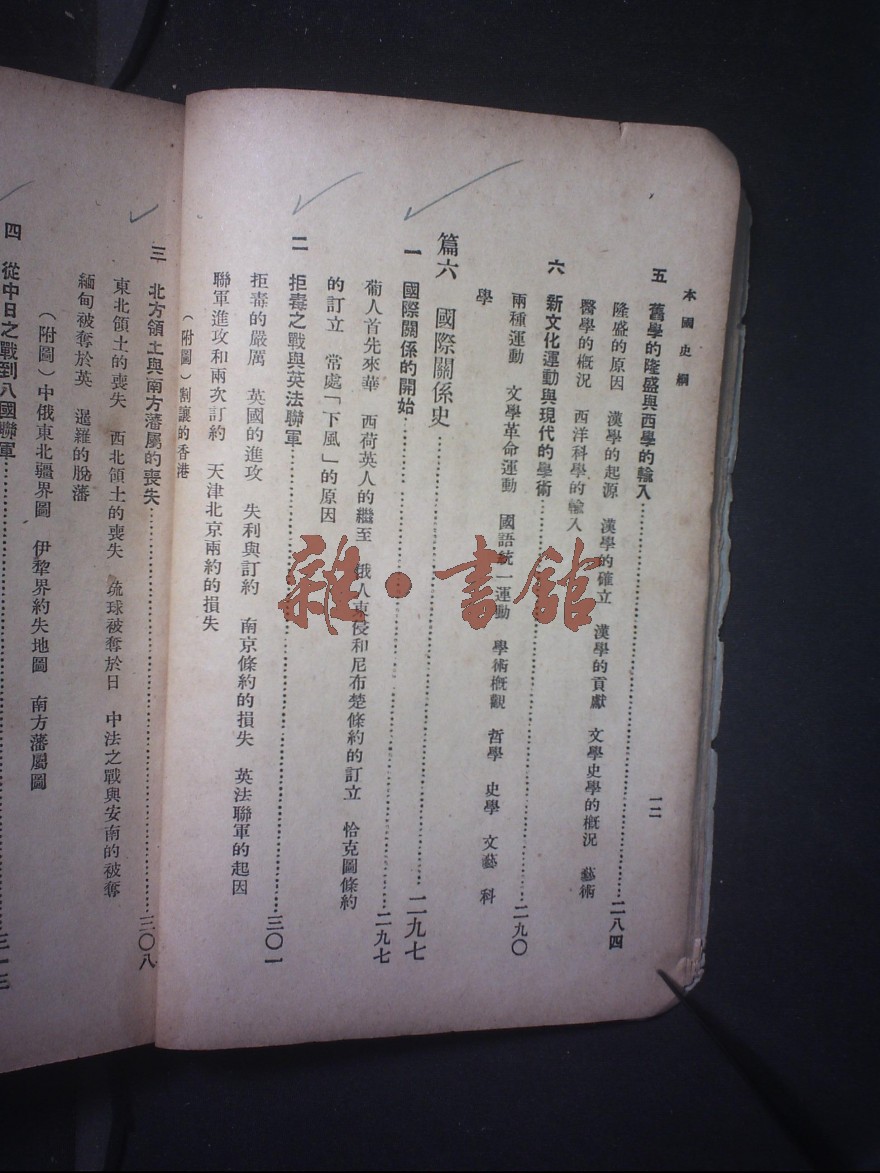 本國史綱
一二
五　舊學的隆盛與西學的輸入……二八四
隆盛的原因　漢學的起源　漢學的確立　漢學的貢獻　文學史學的概況　藝術
醫學的概況　西洋科學的輸入
六　新文化運動與現代的學術……二九〇
兩種運動　文學革命運動　國語統一運動　學術概觀　哲學　史學　文藝　科
學
篇六　國際關係史……二九七
一　國際關係的開始……二九七
葡人首先來華　西荷英人的繼至　俄人東侵和尼布楚條約的訂立　恰克圖條約
的訂立　常處「下風」的原因
二　拒毒之戰與英法聯軍……三〇一
拒毒的嚴厲　英國的進攻　失利與訂約　南京條約的損失　英法聯軍的起因
聯軍進攻和兩次訂約　天津北京兩約的損失
（附圖）割讓的香港
三　北方領土與南方藩屬的喪失……三〇八
東北領土的喪失　西北領土的喪失　琉球被奪於日　中法之戰與安南的被奪
緬甸被奪於英　暹羅的脫藩
（附圖）中俄東北疆界圖　伊犂界約失地圖　南方藩屬圖
四　從中日之戰到八國聯軍……三一三
雜·書館